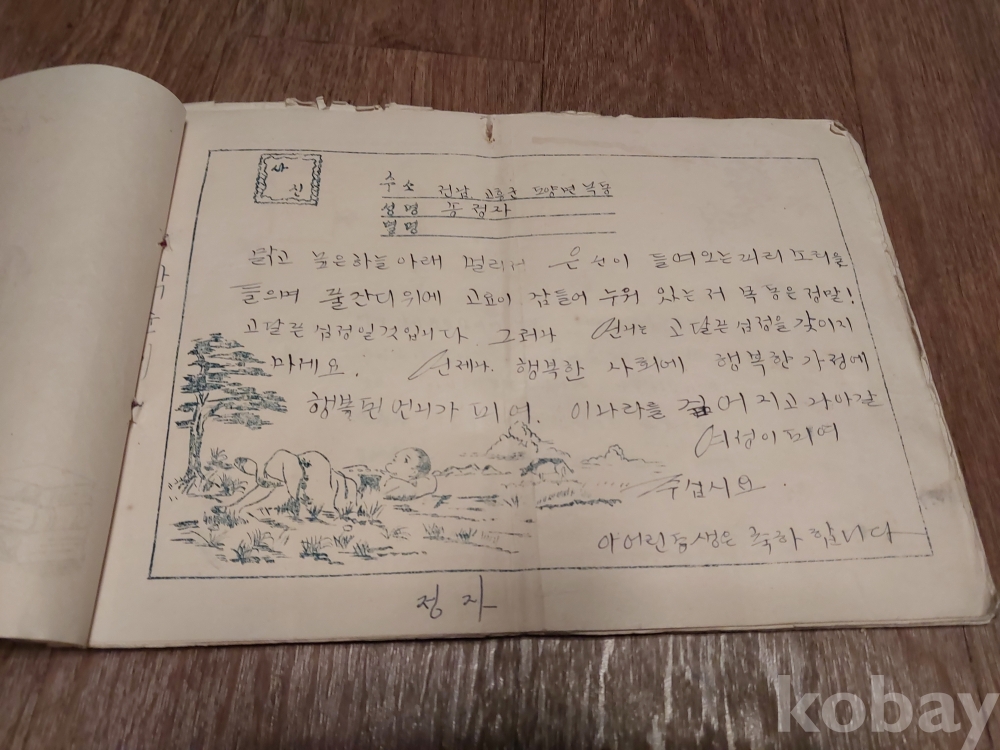 사
진
주소 전남 고흥군 도양면 북동
성명 동정자
별명
맑고 높은하늘아래 멀리서 은은이 들여오는피리 소리을
들으며 풀잔디위에 고요이 잠들어 누워 있는저 목동은정말!
고달픈심정일것입니다. 그러나 언니는 고달픈심정을갖이지
마세요. 언제나 행복한 사회에 행복한 가정에
행복된 언니가 되여. 이나라를 걺어지고 나아갈
여성이되여
주십시요.
이어린동생은 축하 합니다
정자
kobay